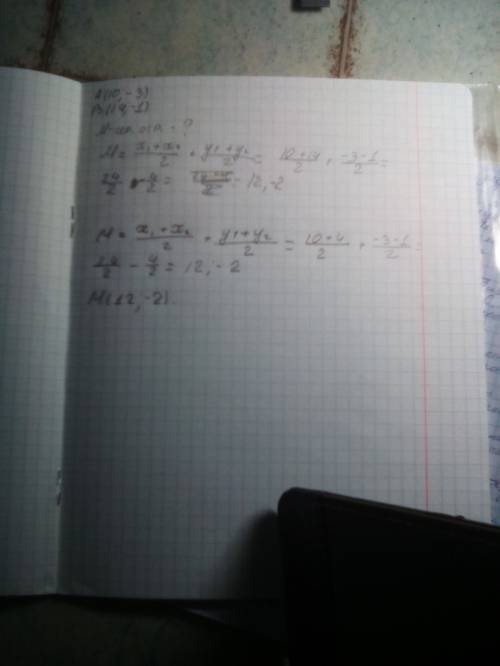 A(10, -3)
B(14, -1)
M = x₁+x₂/2 + y₁+y₂/2 = 10+14/2 + -3-1/2 =
24/2 4/2 = = 12, -2
M = x₁+x₂/2 + y₁+y₂/2 = 10+4/2 + -3-1/2 =
24/2 - 4/2 = 12; -2
M(12, -2)